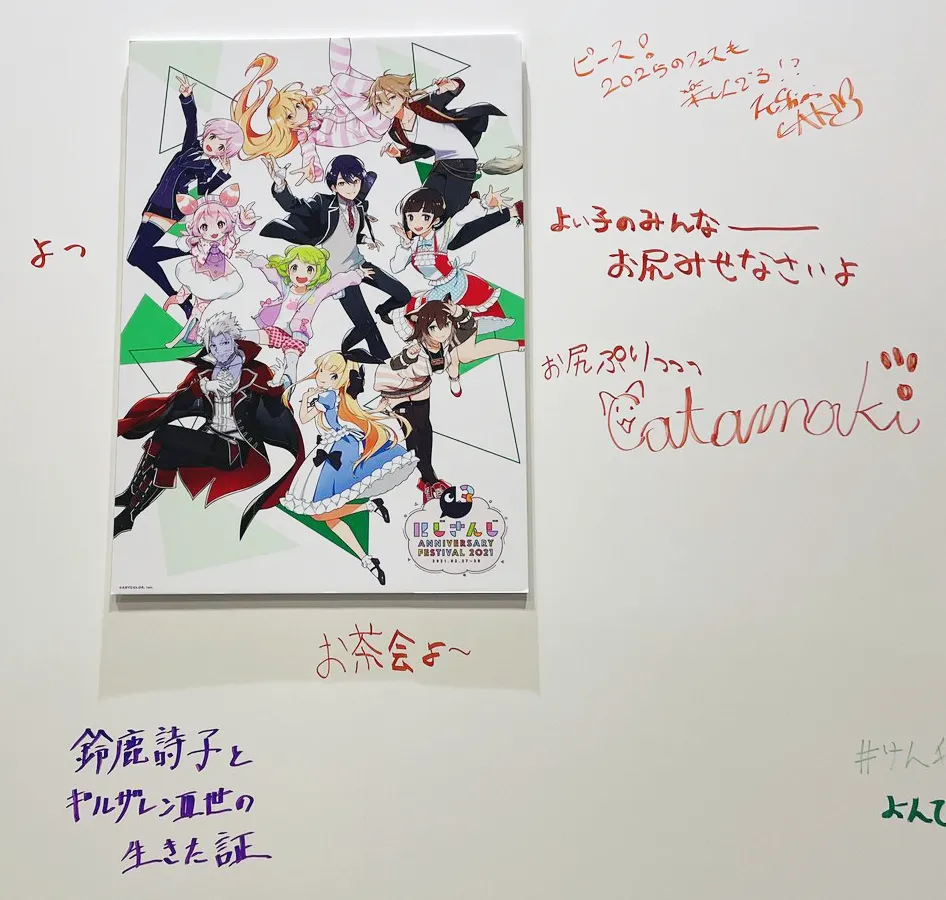 ピース!
2025のフェスも
楽しんでる!?
よっ
よい子のみんなーー
お尻みせなさいよ
お尻ぷりっっっ
Catamaki
にじさんじ
ANNIVERSARY
FESTIVAL 2021
2021.02.27-28
©ANYCOLOR, Inc.
お茶会よ〜
鈴鹿詩子と
ギルザレンⅢ世の
生きた証
#けん
よんで